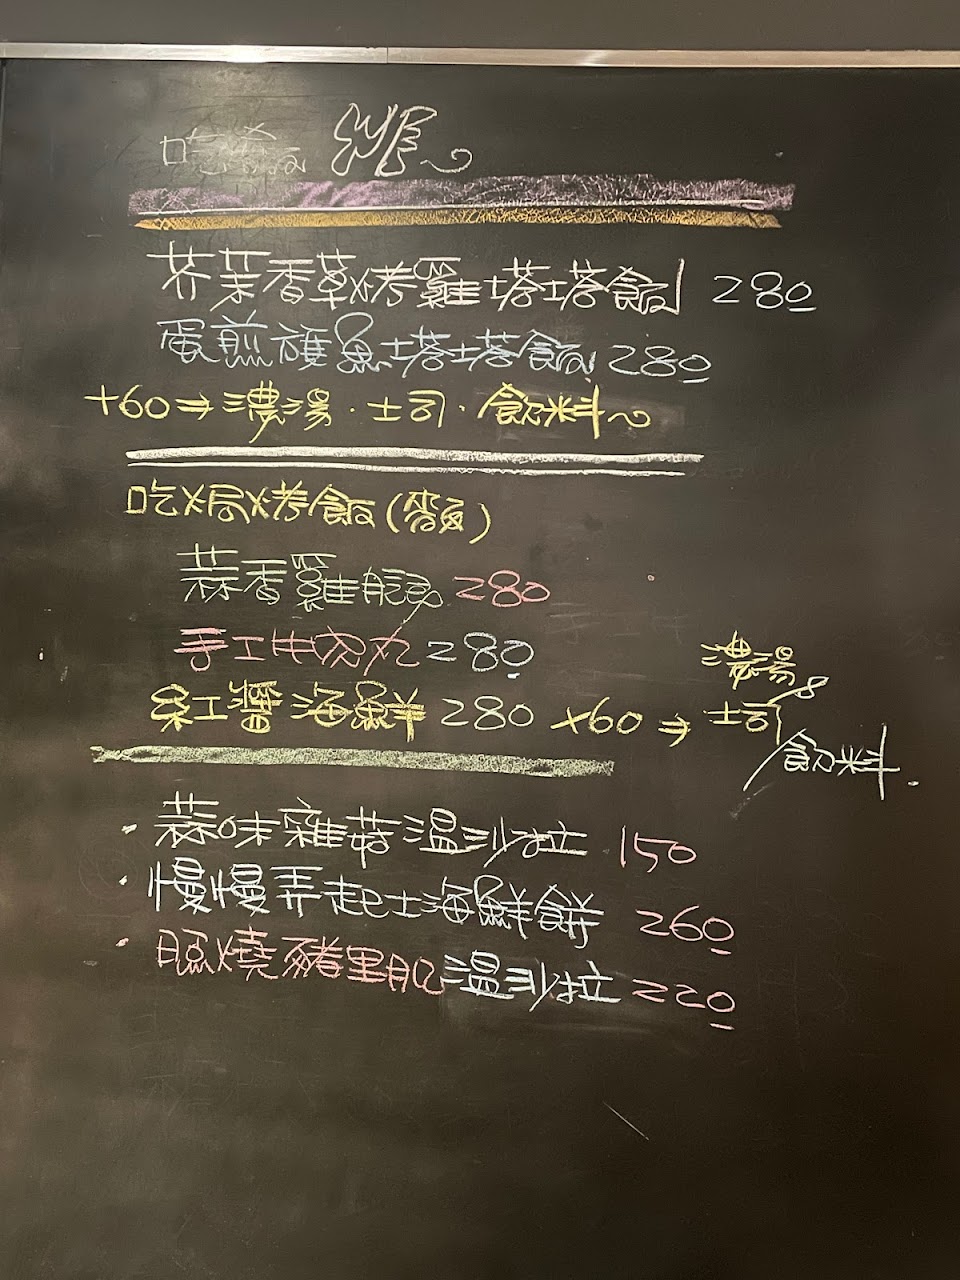 吃飯
芥茉香草烤雞塔塔飯 280
蛋煎旗魚塔塔飯 280
+60⇒濃湯·土司·飲料~
吃焗烤飯(麵)
蒜香雞腿 280
手工牛肉丸 280
紅醬海鮮 280 +60⇒ 濃湯 & 土司 飲料
· 蒜味雜菇溫沙拉 150
· 慢慢弄起士海鮮餅 260
· 照燒豬里肌溫沙拉 220